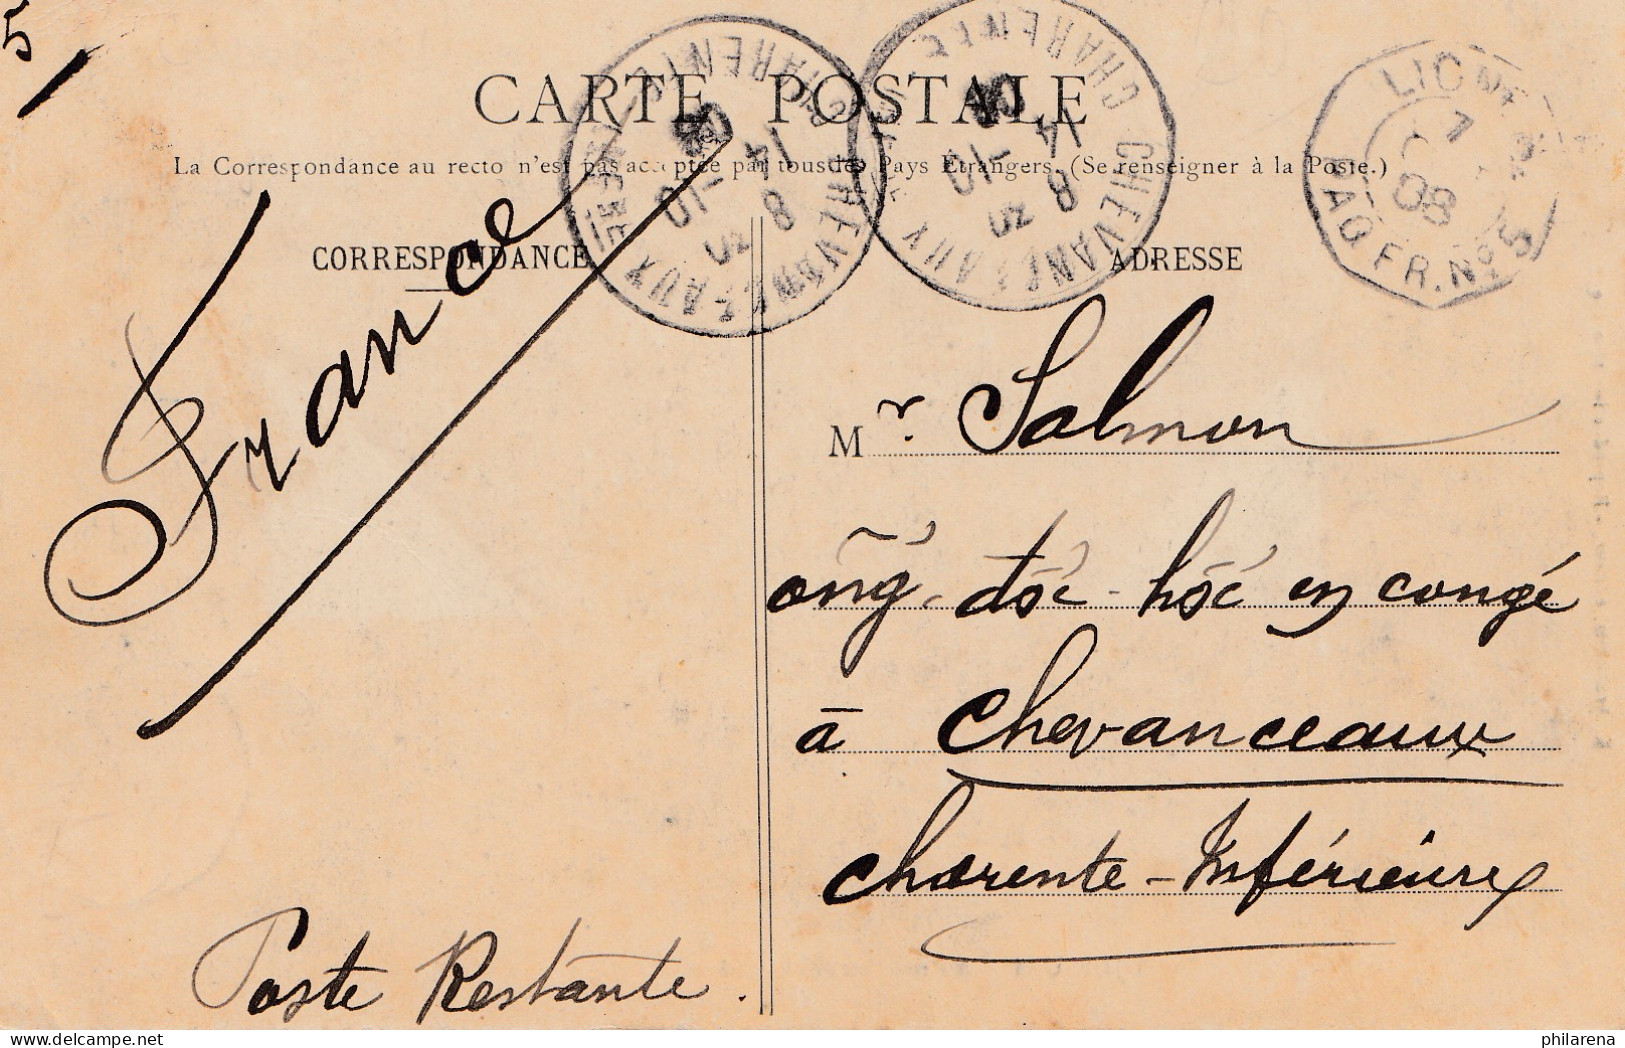 5
CARTE POSTALE
La Correspondance au recto n'est pas acceptée par tous les Pays Étrangers. (Se renseigner à la Poste.)
CORRESPONDANCE
ADRESSE
CHEVANCEAUX CHARENTE
8
14 -10
08
CHEVANCEAUX CHARENTE
8
14 -10
08
LIGNE
PAQ. FR. Nº 5
7
08
France
Mr. Salmon
ông đốc-học en congé
à Chevanceaux
Charente-Inférieure
Poste Restante.
philarena